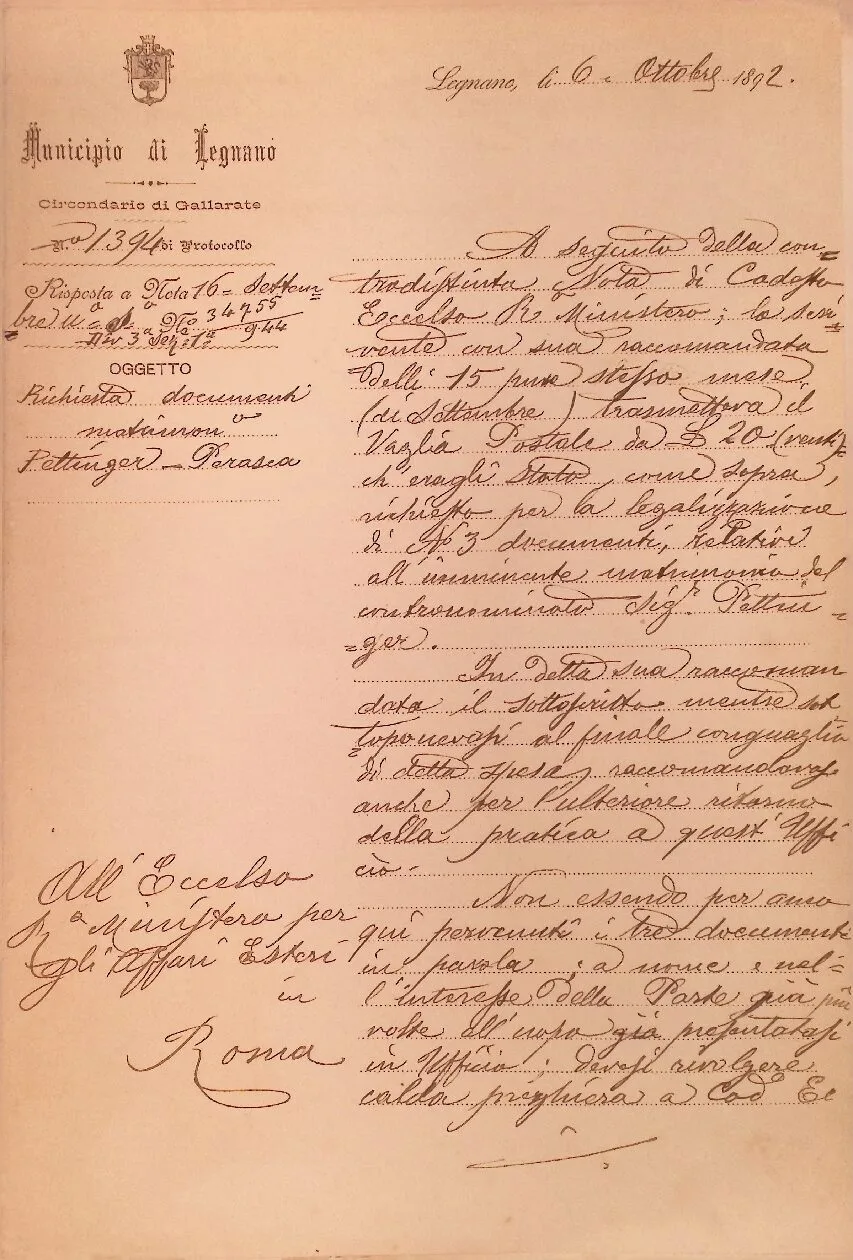 Legnano, li 6 Ottobre 1892.
Municipio di Legnano
Circondario di Gallarate
N.o 1394 di Protocollo
Risposta a Nota 16 = Settem=
=bre u° N° 34755
Div 3 Sez. 1a 944
OGGETTO
Richiesta documenti
matrimonº
Pettinger - Perasca
All' Eccelso
R° Ministero per
gli Affari Esteri
in
Roma
A seguito della con=
tradistinta Nota di Codesto
Eccelso R° Ministero; lo scri=
=vente con sua raccomandata
delli 15 pure stesso mese
(di Settembre) trasmetteva il
Vaglia Postale da L 20 (venti)=
ch' eragli stato, come sopra,
richiesto per la legalizzazione
di N° 3 documenti, relativi
all' imminente matrimonio del
contronominato Sig.r Pettin=
=ger.
In detta sua raccoman
data il sottoscritto mentre sot
toponevasi al finale conguaglio
di detta spesa, raccomandavasi
anche per l'ulteriore ritorno
della pratica a quest' Uffi
cio.
Non essendo per anco
qui pervenuti i tre documenti
in parola; a nome e nel=
l'interesse della Parte già più
volte all' uopo già presentatasi
in Ufficio; devesi rivolgere
calda preghiera a Cod° Ec